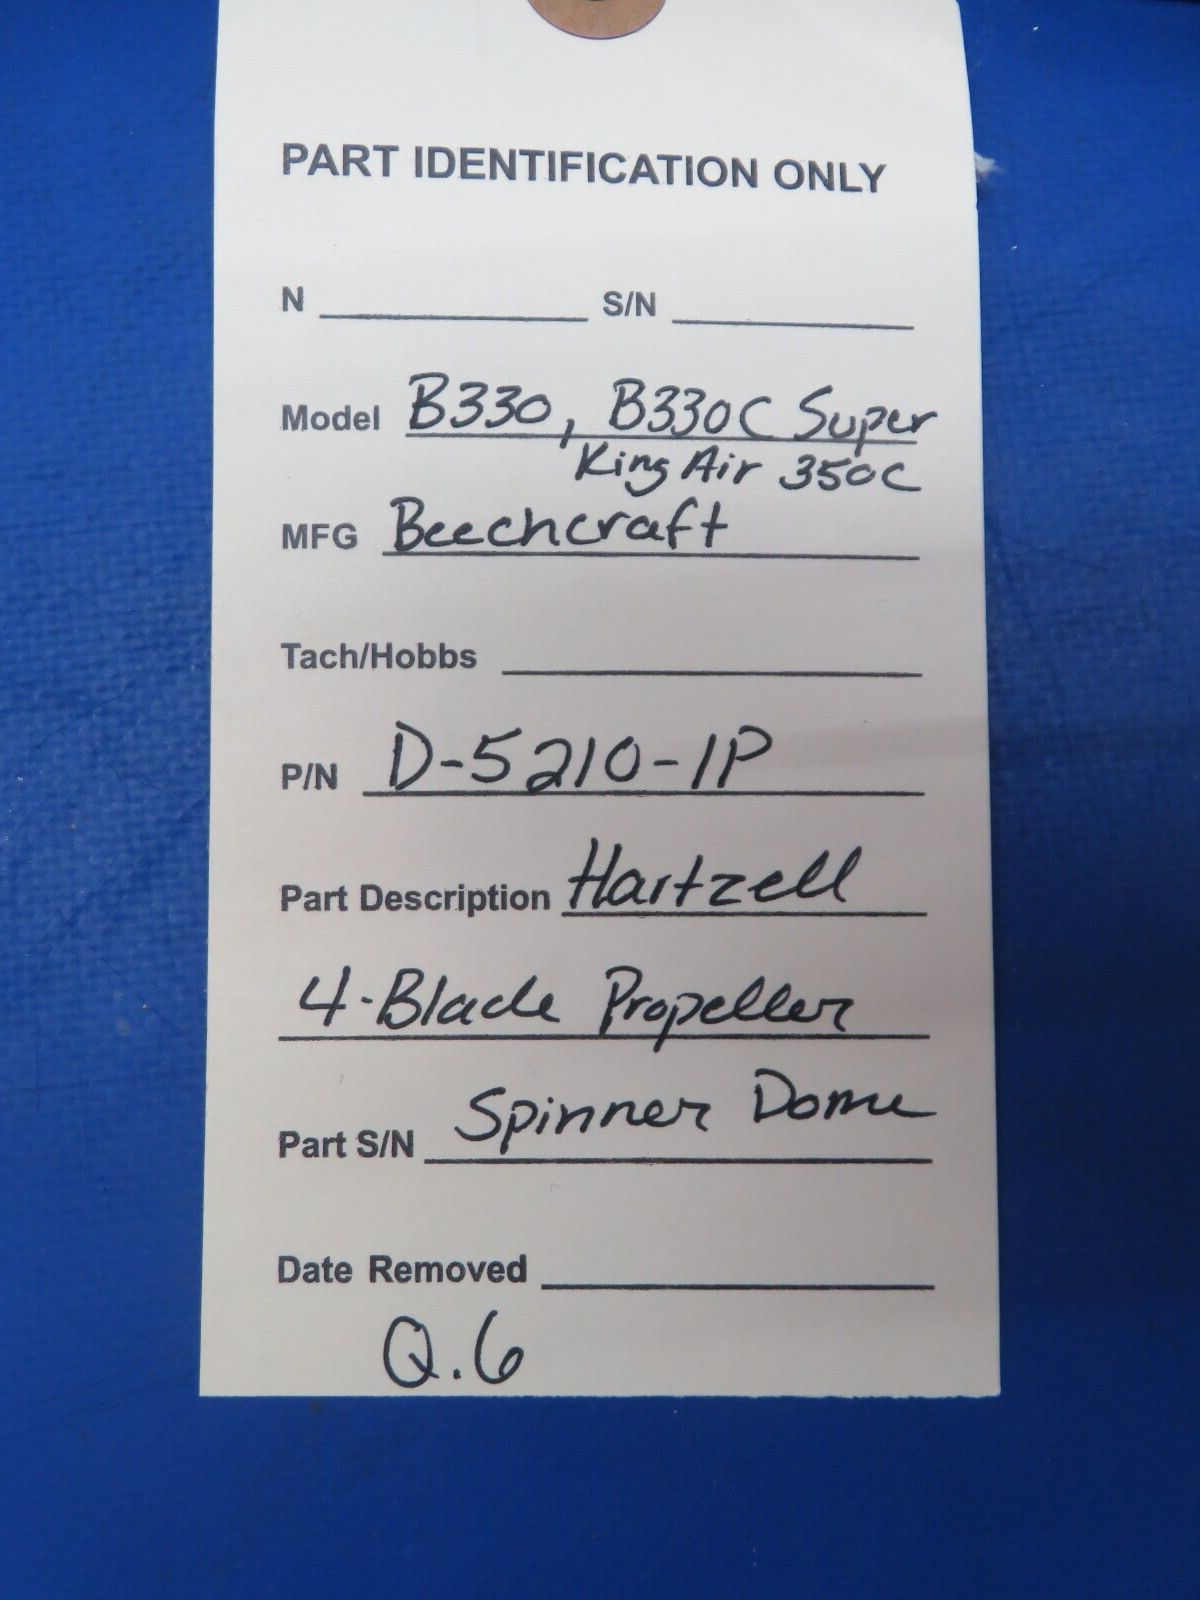 PART IDENTIFICATION ONLY
N S/N
Model B330, B330C Super
King Air 350C
MFG Beechcraft
Tach/Hobbs
P/N D-5210-1P
Part Description Hartzell
4-Blade Propeller
Part S/N Spinner Dome
Date Removed
Q.6